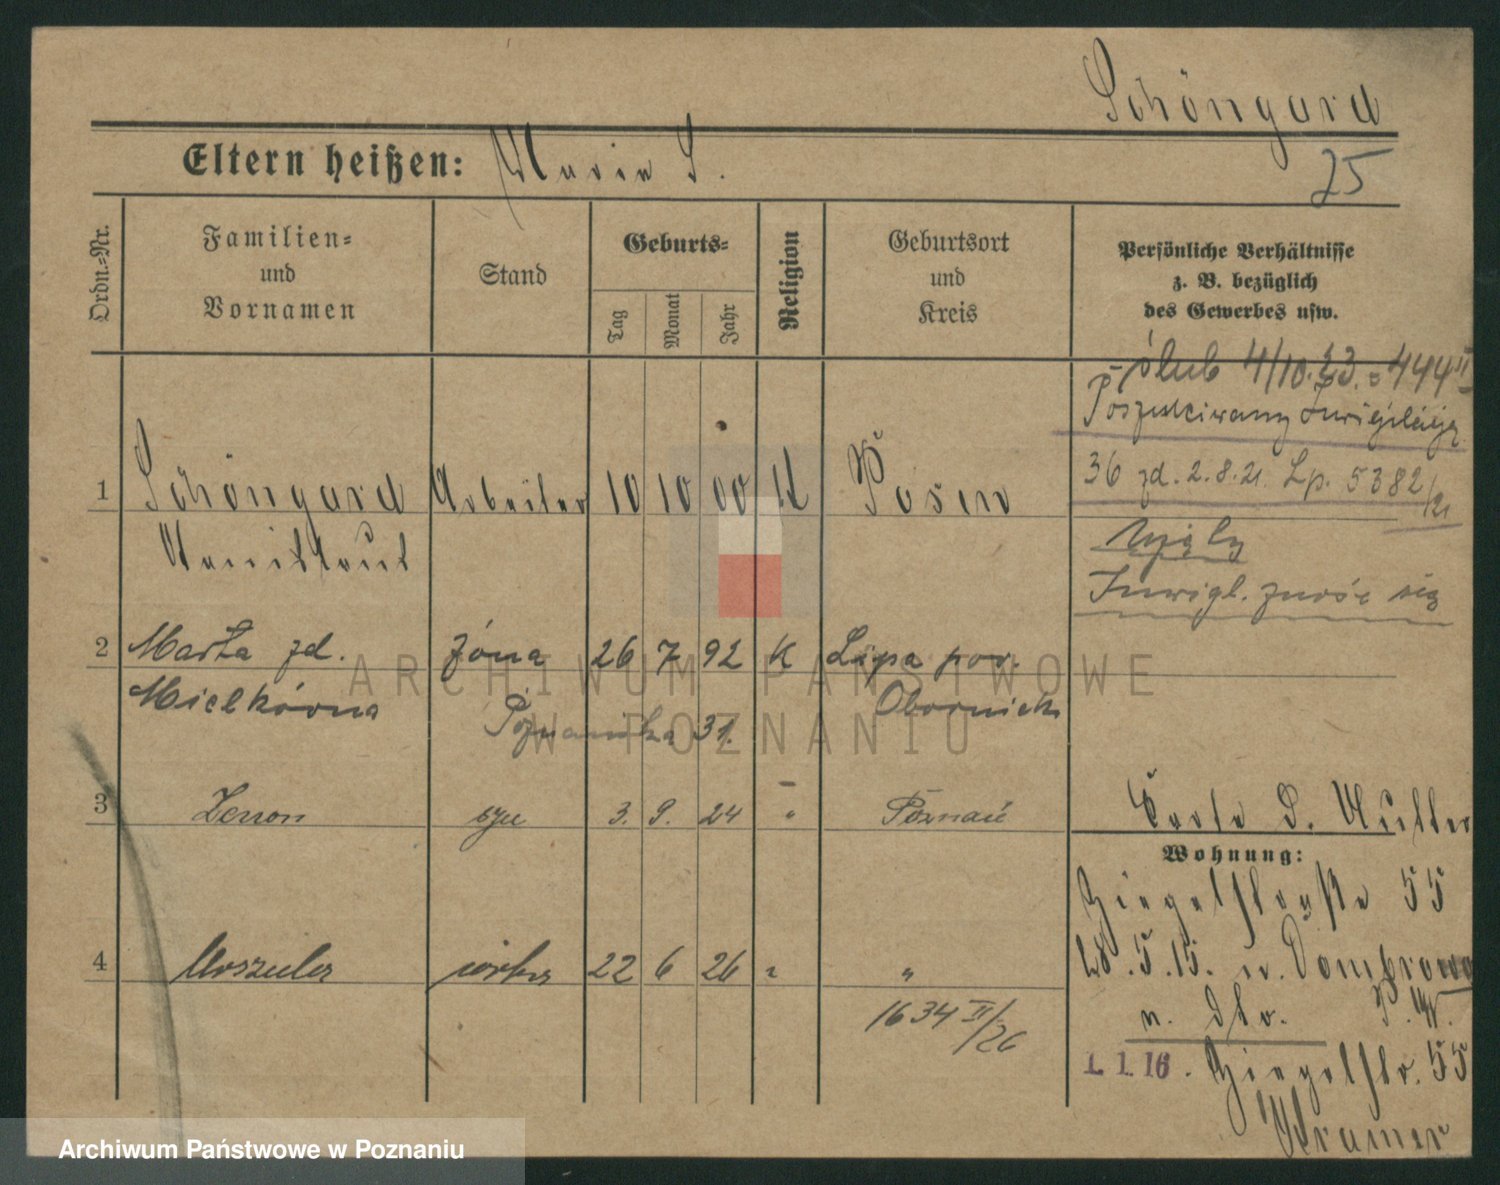 Schöngard
25
Eltern heißen: Marie S.
Ordn.-Nr.
Familien-
und
Vornamen
Stand
Geburts-
Tag
Monat
Jahr
Religion
Geburtsort
und
Kreis
Persönliche Verhältnisse
z. B. bezüglich
des Gewerbes usw.
ślub 4/10.23. 444 II
Poszukiwany Inwigilacja
36 zd. 2.8.21. Lp. 5382/21
Inwigl. znosi się
1 Schöngard Arbeiter 10 10 00 K Posen
Stanislaus
2 Marta zd. żona 26 7 92 K Lipa pow.
Mielkówna Obornick
Poznańska 31.
3 Zenon syn 3. 9. 24 " Poznań
4 Urszula córka 22 6 26 " "
1634 II/26
Karte d. Mutter
Wohnung:
Ziegelstraße 55
28.5.15. n. Dombrowo
P. W.
1. 1. 16. Ziegelstr. 55
Kramer
ARCHIWUM PAŃSTWOWE
W POZNANIU
Archiwum Państwowe w Poznaniu